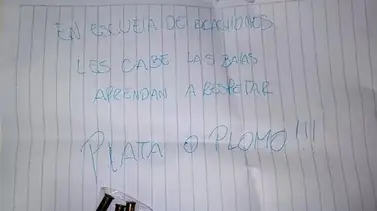 EN ESCUELA DE EDUCACIONES
LES CABE LAS BALAS
APRENDAN A RESPETAR
PLATA O PLOMO!!!